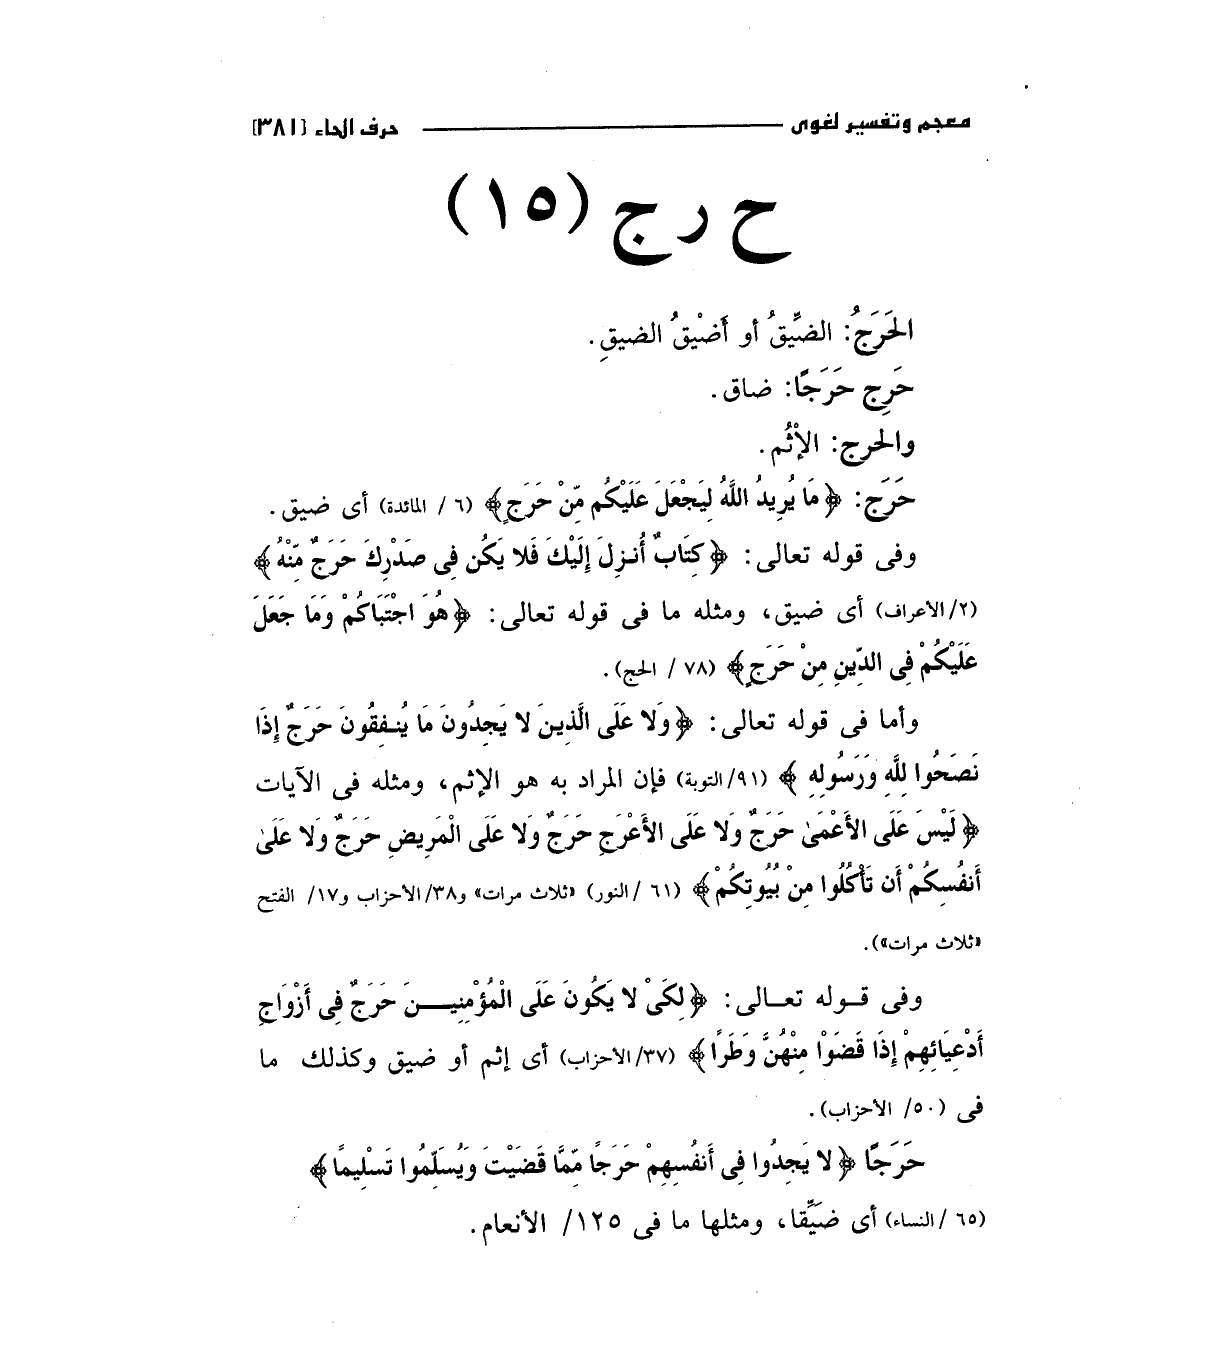 معجم وتفسير لغوى حرف الحاء [٣٨١]
ح ر ج (١٥)
الحَرَجُ: الضيِّقُ أو أَضْيقُ الضيقِ.
حَرِج حَرَجًا: ضاق.
والحرج: الإْثُم.
حَرَج: ﴿مَا يُرِيدُ اللَّهُ لِيَجْعَلَ عَلَيْكُم مِّنْ حَرَجٍ﴾ (٦ / المائدة) أى ضيق.
وفى قوله تعالى: ﴿كِتَابٌ أُنزِلَ إِلَيْكَ فَلا يَكُن فِى صَدْرِكَ حَرَجٌ مِّنْهُ﴾
(٢/الأعراف) أى ضيق، ومثله ما فى قوله تعالى: ﴿هُوَ اجْتَبَاكُمْ وَمَا جَعَلَ
عَلَيْكُمْ فِى الدِّينِ مِنْ حَرَجٍ﴾ (٧٨ / الحج).
وأما فى قوله تعالى: ﴿وَلا عَلَى الَّذِينَ لا يَجِدُونَ مَا يُنفِقُونَ حَرَجٌ إِذَا
نَصَحُوا لِلَّهِ وَرَسُولِهِ ﴾ (٩١/التوبة) فإن المراد به هو الإثم، ومثله فى الآيات
﴿لَيْسَ عَلَى الأَعْمَىٰ حَرَجٌ وَلا عَلَى الأَعْرَجِ حَرَجٌ وَلا عَلَى الْمَرِيضِ حَرَجٌ وَلا عَلَىٰ
أَنفُسِكُمْ أَن تَأْكُلُوا مِنْ بُيُوتِكُمْ﴾ (٦١ /النور) «ثلاث مرات» و٣٨/الأحزاب و١٧/ الفتح
«ثلاث مرات»).
وفى قوله تعالى: ﴿لِكَىْ لا يَكُونَ عَلَى الْمُؤْمِنِينَ حَرَجٌ فِى أَزْوَاجِ
أَدْعِيَائِهِمْ إِذَا قَضَوْا مِنْهُنَّ وَطَرًا﴾ (٣٧/الأحزاب) أى إثم أو ضيق وكذلك ما
فى (٥٠/ الأحزاب).
حَرَجًا ﴿لا يَجِدُوا فِى أَنفُسِهِمْ حَرَجًا مِّمَّا قَضَيْتَ وَيُسَلِّمُوا تَسْلِيمًا﴾
(٦٥ /النساء) أى ضيِّقا، ومثلها ما فى ١٢٥/ الأنعام.